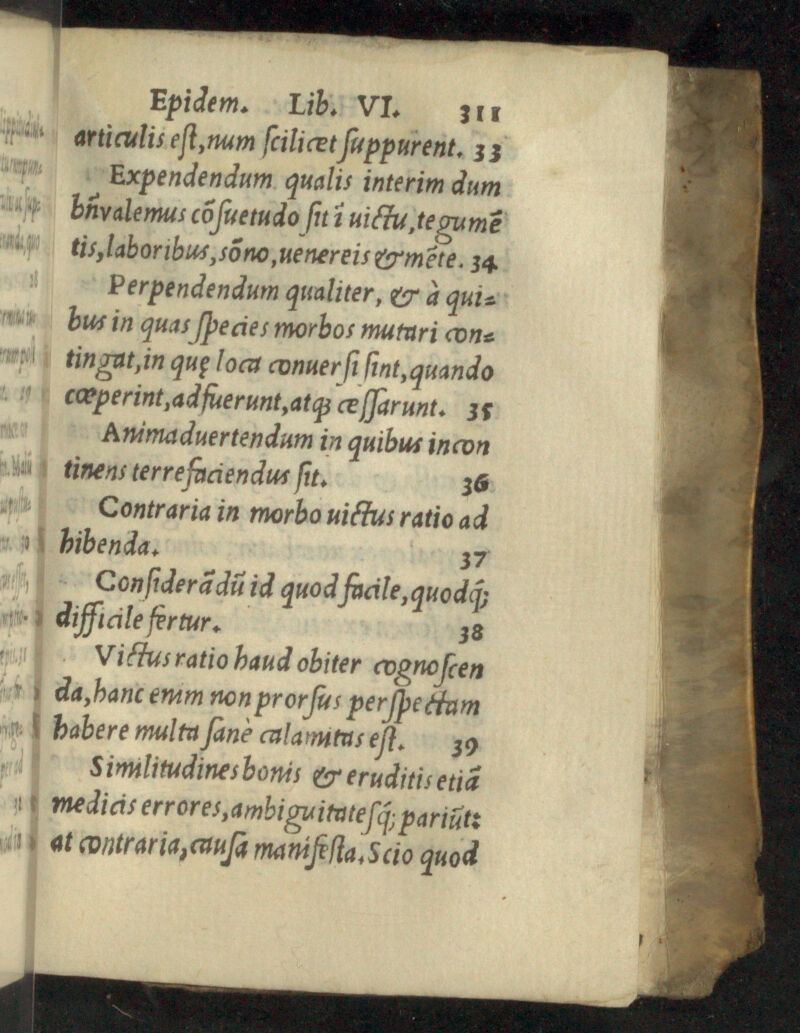 Epidem. Lib. VI. 311
articulis eſt, num ſcilicet ſuppurent. 33
Expendendum qualis interim dum
bñ valemus cõſuetudo ſit ĩ uictu, tegumẽ
tis, laboribus, sõno, uenereis & mẽte. 34
Perpendendum qualiter, & à qui-
bus in quas ſpecies morbos mutari con-
tingat, in quę loca conuerſi ſint, quando
cœperint, adfuerunt, atq; ceſſarunt. 35
Animaduertendum in quibus incon
tinens terrefaciendus ſit. 36
Contraria in morbo uictus ratio ad
hibenda. 37
Conſiderãdũ id quod facile, quodq́;
difficile fertur. 38
Victus ratio haud obiter cognoſcen
da, hanc enim non prorſus perſpectam
habere multa ſanè calamitas eſt. 39
Similitudines bonis & eruditis etiã
medicis errores, ambiguitateſq́; pariũt:
at contraria, cauſa manifeſta. Scio quod